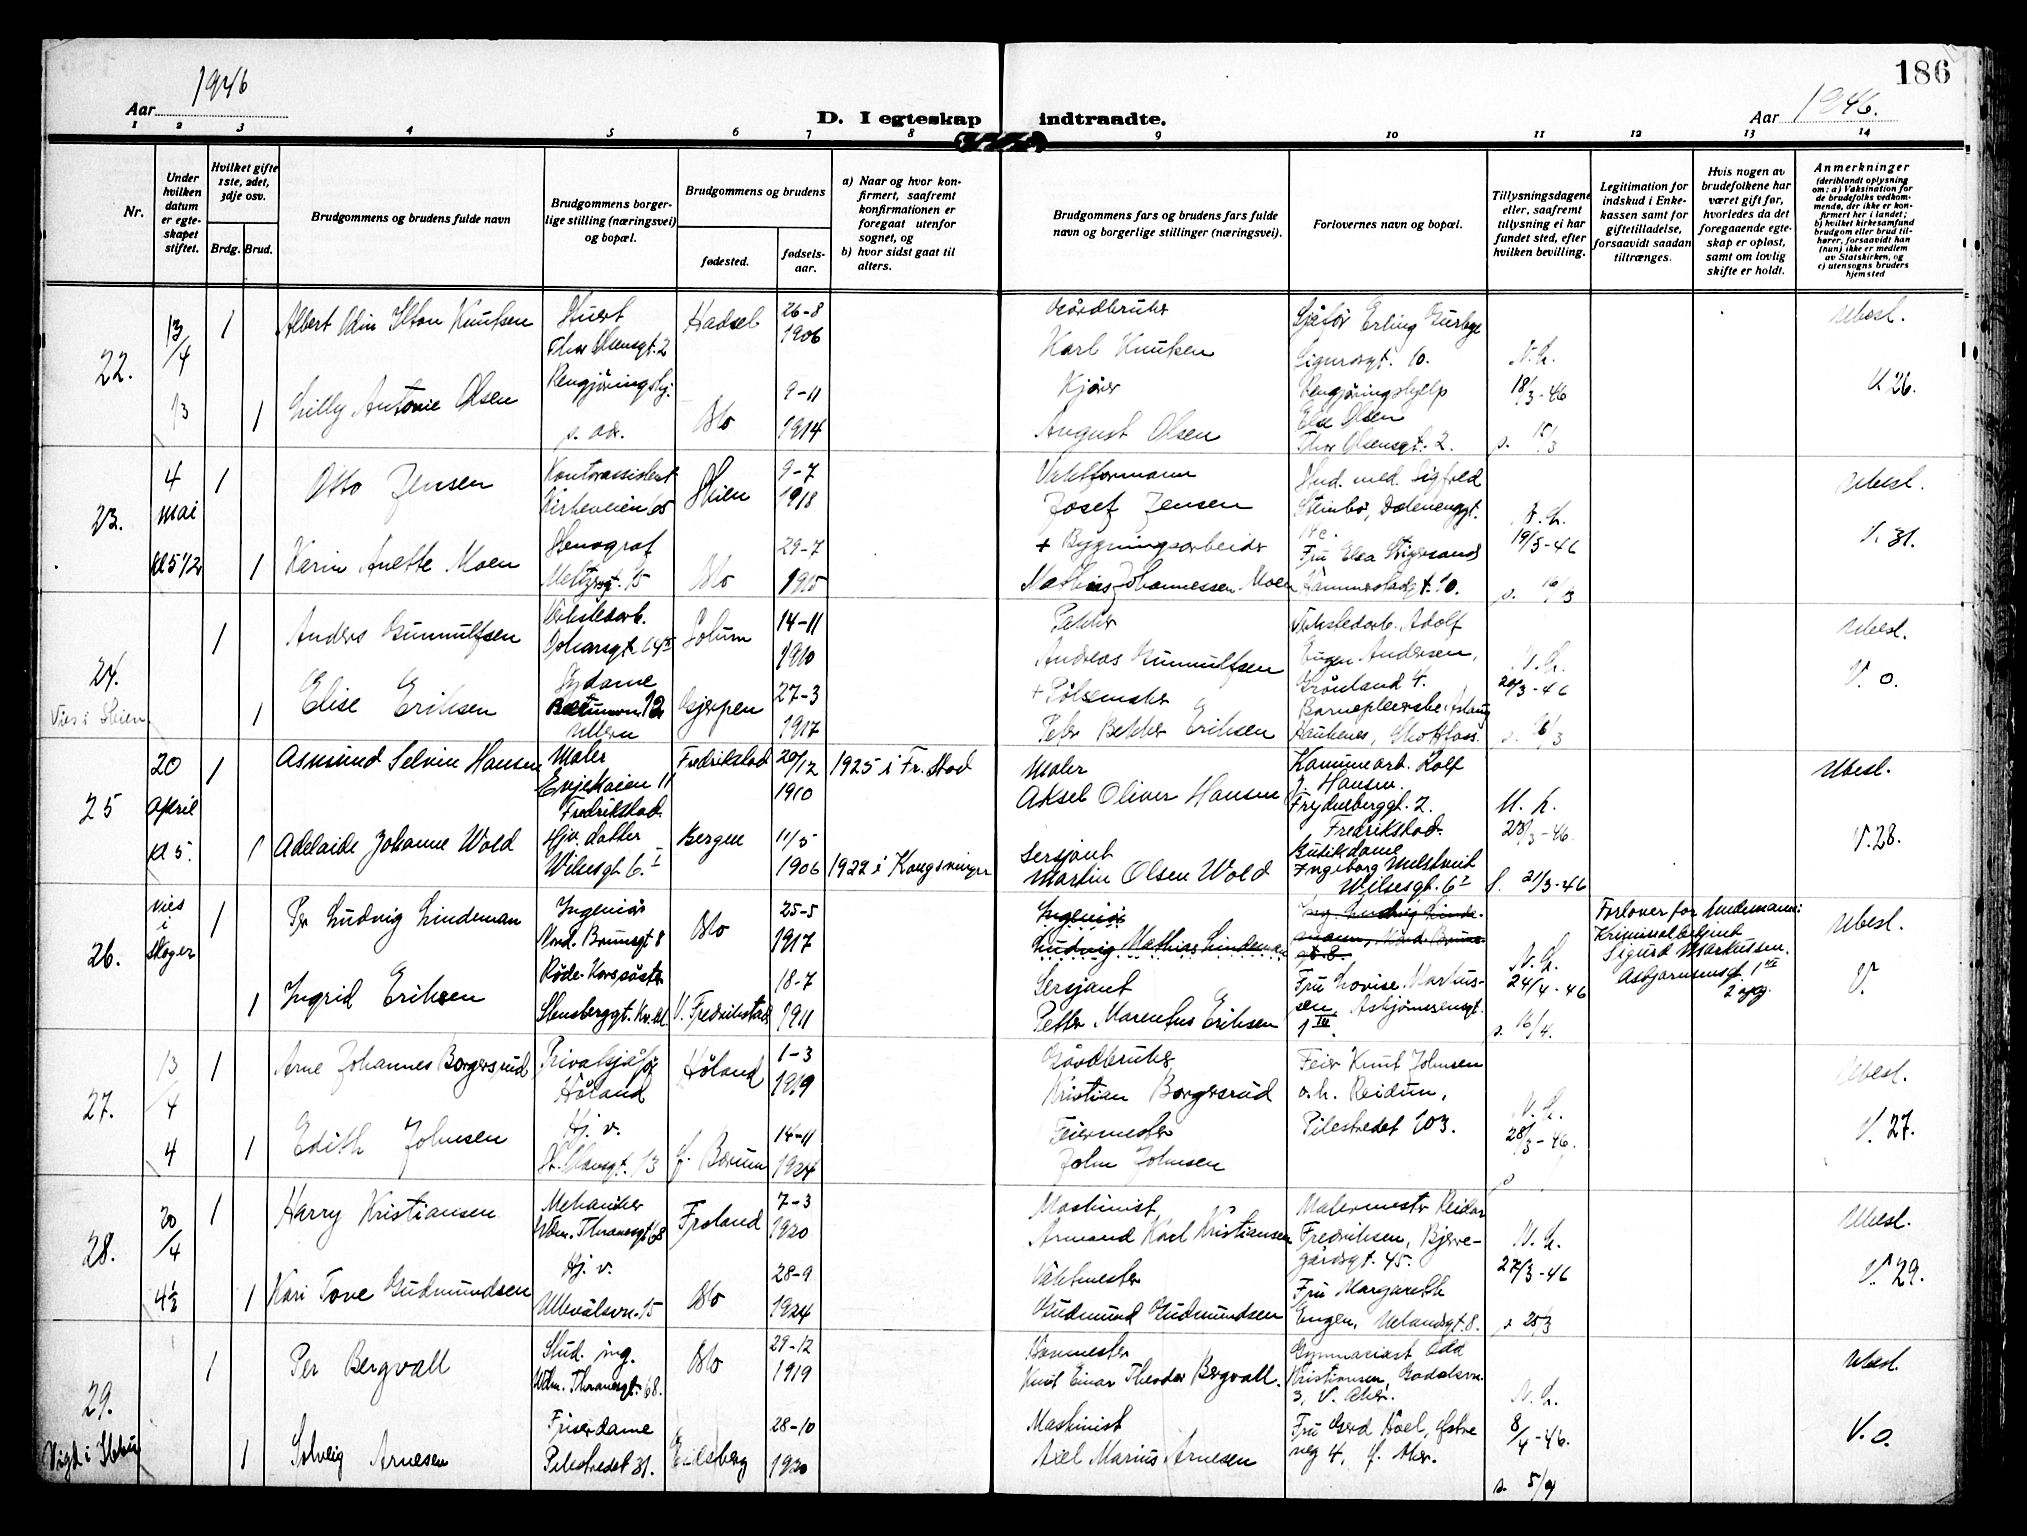 186
Aar 1946
Aar 1946.
D. Iegteskap indtraadte.
1 2 3 4 5 6 7 8 9 10 11 12 13 14
Nr.
Under hvilken datum er egteskapet stiftet.
Hvilket gifte 1ste, 2det, 3dje osv.
Brdg. Brud.
Brudgommens og brudens fulde navn
Brudgommens borgerlige stilling (næringsvei) og bopæl.
Brudgommens og brudens
fødested.
fødselsaar.
a) Naar og hvor konfirmert, saafremt konfirmationen er foregaat utenfor sognet, og
b) hvor sidst gaat til alters.
Brudgommens fars og brudens fars fulde navn og borgerlige stillinger (næringsvei).
Forlovernes navn og bopæl.
Tillysningsdagene eller, saafremt tillysning ei har fundet sted, efter hvilken bevilling.
Legitimation for indskud i Enkekassen samt for giftetilladelse, forsaavidt saadan tiltrænges.
Hvis nogen av brudefolkene har været gift før, hvorledes da det foregaaende egteskap er opløst, samt om lovlig skifte er holdt.
Anmerkninger
(deriblandt oplysning om: a) Vaksination for de brudefolks vedkommende, der ikke er konfirmert her i landet; b) hvilket kirkesamfund brudgom eller brud tilhører, forsaavidt han (hun) ikke er medlem av Statskirken, og c) utensogns bruders hjemsted
22. 13/4 1 Albert Odin Ilton Knutsen Stuert Thor Olsensgt. 2 Hadsel 26-8 1906 Gårdbruker Karl Knutsen Sjåfør Erling Sigurdsgt. 10. 18/3-46 Ubesl.
13 1 Lilly Antonie Olsen Rengjøringshj. s. adr. Oslo 9-11 1914 Kjører August Olsen Rengjøringshjelp Else Olsen Thor Olsensgt. 2. s. 15/3 V. 26.
23. 4 mai 1 Otto Jensen Kontorassistent Kirkeveien 65 Skien 9-7 1918 Vaktformann Josef Jensen Stud. med. Sigfred Stenbø, Dælenenggt. 19/3-46 Ubesl.
kl 5 1/2 1 Karin Anette Moen Stenograf Meltzersgt. 15 Oslo 29-7 1915 + Bygningsarbeider Mathias Johannessen Moen Fru Elsa Hammerstadgt. 10. s. V. 31.
24. Vies i Skien 1 Anders Gunnulfsen Verkstedarb. Solum 14-11 1910 Pakker Andreas Gunnulfsen Verkstedarb. Adolf Eugen Andersen, Grønland 4. 20/3-46 Ubesl.
1 Elise Eriksen Sydame Bærumsvn. 12 Ullern Gjerpen 27-3 1917 + Pølsemaker Peter Bekker Eriksen Barnepleierske Aslaug Haukenes, Skotfoss. s. 16/3 V. 0.
25 20 april 1 Asmund Selvin Hansen Maler Evjekaien 11 Fredrikstad Fredrikstad 20/12 1910 1925 i Fr. stad Maler Aksel Oliver Hansen Kammearb. Rolf J. Hansen. Frydenberggt. 2. Fredrikstad. 28/3-46. Ubesl.
kl 5. 1 Adelaide Johanne Wold Hjv. datter Wilsesgt. 6 I Bergen 11/5 1906 1922 i Kongsvinger Sersjant Martin Olsen Wold Butikdame Ingeborg Wilsesgt. 6 I f. 21/3-46 V. 28.
26. vies i Skoger 1 Per Ludvig Lindeman Ingeniør Nord. Brunsgt 8 Oslo 25-5 1917 Ingeniør Ludvig Mathias Lindeman 24/4-46 Forlover for Lindemann: Kriminalbetjent Sigurd Markussen. Ubesl.
1 Ingrid Eriksen Røde-Korssøster Stensberggt. V. Fredrikstad 18-7 1911 Sersjant Petter Marentus Eriksen Fru Lovise Markussen, Asbjørnsensgt. 1 III s. 16/4. V.
27. 13/4 1 Arne Johannes Borgersrud Privatsjåfør Høland Høland 1-3 1919 Gårdbruker Kristian Borgersrud Feier Knut Johnsen o.h. Reidun, Pilestredet 103. 28/3-46. Ubesl.
4 1 Edith Johnsen Hj. v. St. Olavsgt. 13 f. Bærum 14-11 1924 Feiermester John Johnsen V. 27.
28. 20/4 1 Harry Kristiansen Mekaniker Wdm. Thranesgt 68 Froland 7-3 1920 Maskinist Armand Karl Kristiansen Malermester Reidar Fredriksen, Bjerregårdsgt. 45. 27/3-46 Ubesl.
4 1/2 1 Kari Tove Gudmundsen Hj. v. Ullevålsvn. 15 Oslo 28-9 1924 Vaktmester Gudmund Gudmundsen Fru Margareth Engen, Uelandsgt 8. s 25/3 V. 29.
29. 1 Per Bergvall Stud. ing. Wdm. Thranesgt. 68. Oslo 29-12 1919 Knut Einar Theodor Bergvall. Gymnasiast Odd Kristiansen, 3, V. Aker. 8/4-46. Ubesl.
Vigd i 1 Solveig Arnesen Friserdame Pilestredet 31. Eidsberg 28-10 1920 Maskinist Axel Marius Arnesen Fru Gerd Hoel, Østre veg 4, f. Aker. s. 5/4 V. 0.